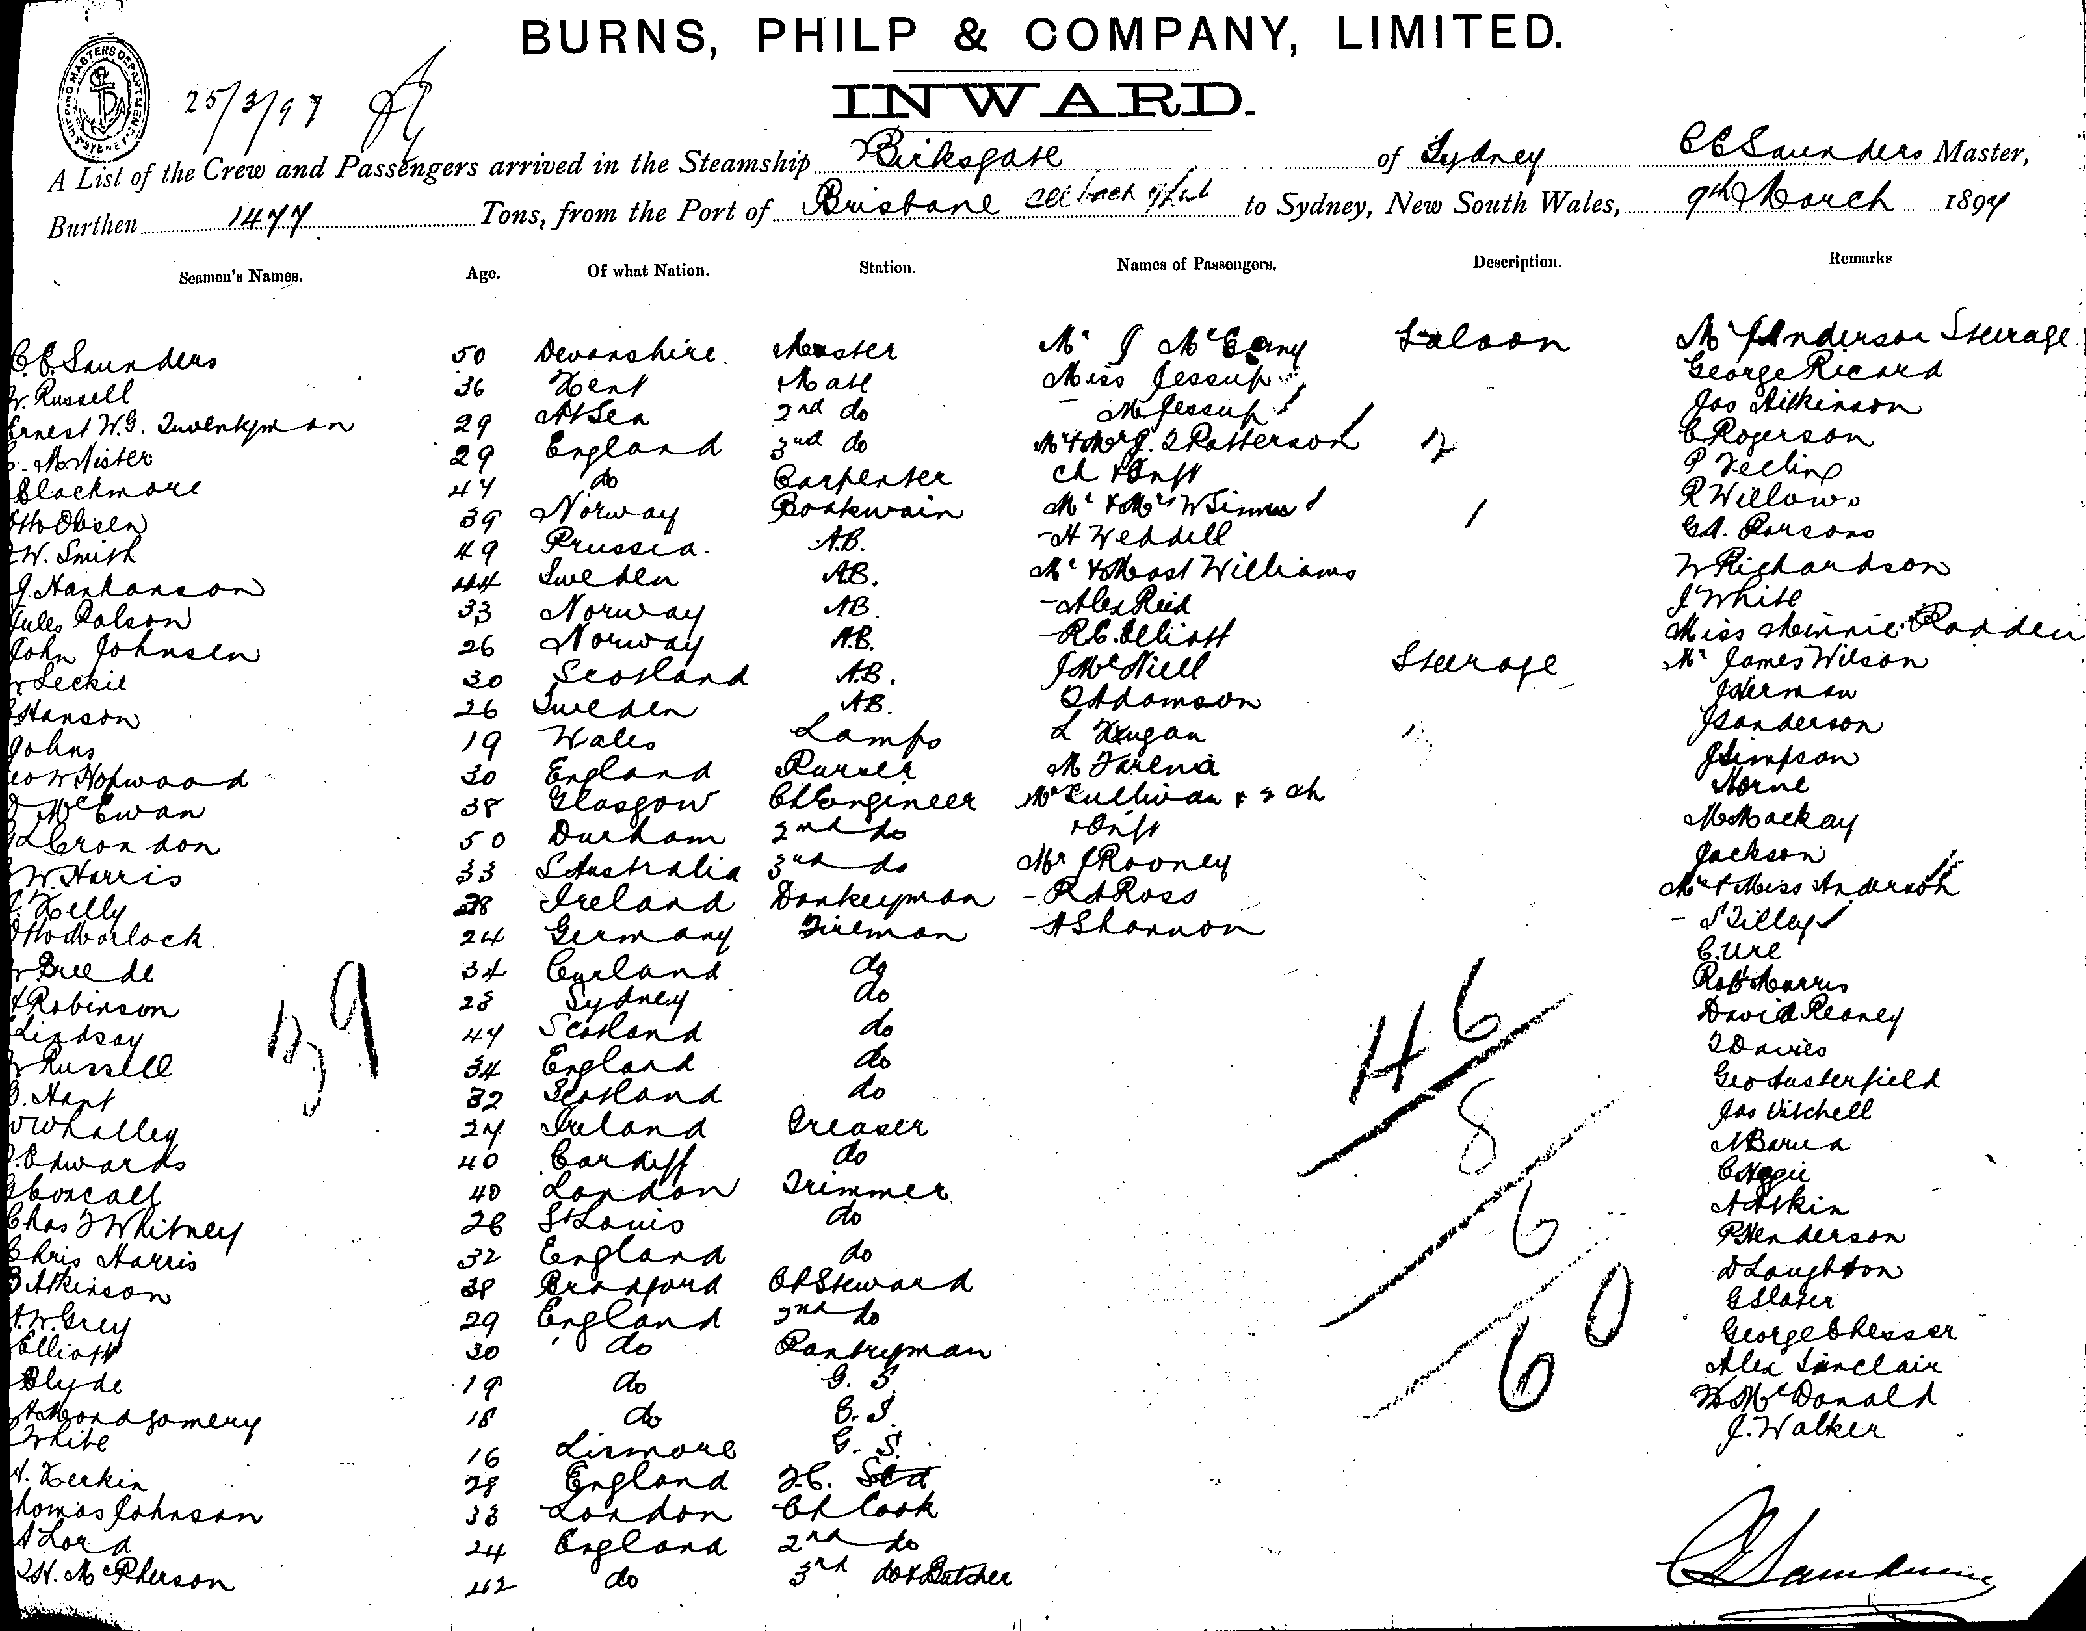 BURNS, PHILP & COMPANY, LIMITED.
INWARD.
25/3/97
A List of the Crew and Passengers arrived in the Steamship Birksgate of Sydney C C Saunders Master,
Burthen 1477 Tons, from the Port of Brisbane to Sydney, New South Wales, 9th March 1897
Seamen's Names. Age. Of what Nation. Station. Names of Passengers. Description. Remarks
C. C. Saunders 50 Devonshire Master Mr J Saloon Mr J Anderson Steerage
W. Russell 36 Kent Mate Miss Jessup George Ricard
Ernest W.G. Twentyman 29 At Sea 2nd do M Jessup Jas Aitkinson
McNister 29 England 3rd do Mr & Mrs J. T Patterson 2 C Rogerson
Blackmore 47 do Carpenter Ch & Inft P
Otto Olsen 39 Norway Boatswain Mr & Mrs W 1 R Willows
W. Smith 49 Prussia. A.B. H Weddell G A. Parsons
J Hankanson 44 Sweden AB. Mr & Mast Williams W Richardson
Jules Polson 33 Norway AB Alex Reid J White
John Johnsen 26 Norway A.B. R. C. Elliott Miss Minnie Rodden
W Leckie 30 Scotland A.B. J McNiell Steerage Mr James Wilson
Hanson 26 Sweden AB. T Adamson J Herman
Johns 19 Wales Lamps L J Sanderson
Geo W Hopwood 30 England Purser M J Simpson
McEwan 38 Glasgow Ch Engineer Mrs Sullivan & 2 ch Horne
L Crondon 50 Durham 2nd do & Inft M Mackay
W. Harris 33 S Australia 3rd do Mr J Rooney Jackson
Kelly 28 Ireland Donkeyman R A Ross Mr & Miss Anderson
Otto Worlock 24 Germany Fireman A Shannon S Tilley
W 34 do C. Ure
Robinson 23 Sydney do Robt Harris
Lindsay 47 Scotland do David Reaney
W Russell 34 England do T Davies
Hart 32 Scotland do Geo Austerfield
W Whalley 24 Ireland Greaser Jas Mitchell
Edwards 40 Cardiff do
40 London Trimmer C
Chas F Whitney 28 St Louis do A Askin
Chris Harris 32 England do P Henderson
Atkinson 38 Bradford Ch Steward D Laughton
A. W. Grey 29 England 2nd do G Slater
Elliott 30 do Pantryman George Chesser
Clyde 19 do G. S. Alex Sinclair
A Montgomery 18 do G. S. W McDonald
White 16 Lismore G. S. J. Walker
A. Kerkin 28 England F.C. Std
Thomas Johnson 33 London Ch Cook
A Lord 24 England 2nd do
H. McPherson 42 do 3rd do & Butcher
39
46
8
6
60
C C Saunders